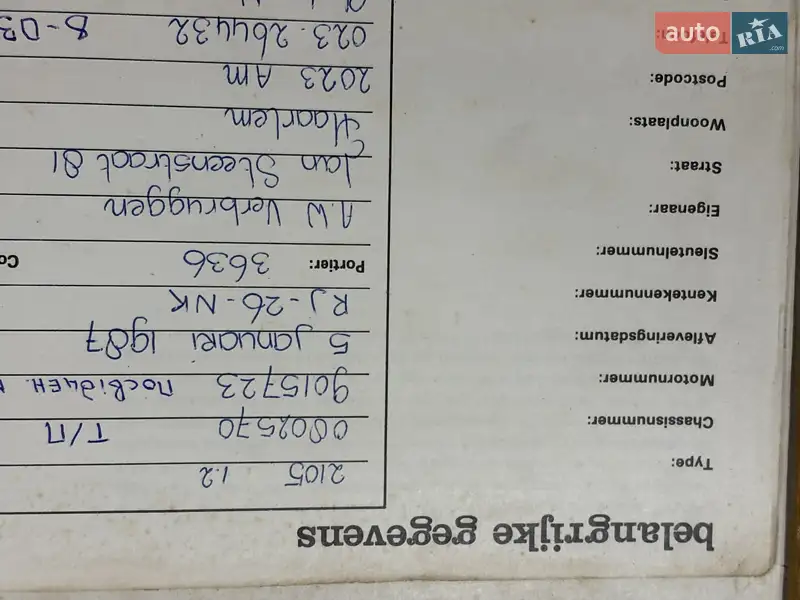 belangrijke gegevens
Type: 2105 1.2
Chassisnummer: 0002570 Т/П
Motornummer: 9015723 посвідчен.
Afleveringsdatum: 5 januari 1987
Kentekennummer: RJ-26-NK
Sleutelnummer: Portier: 3636 Co
Eigenaar: A.W Verbruggen
Straat: Jan Steenstraat 81
Woonplaats: Haarlem
Postcode: 2023 AM
023-264432 8-03
auto RIA .com